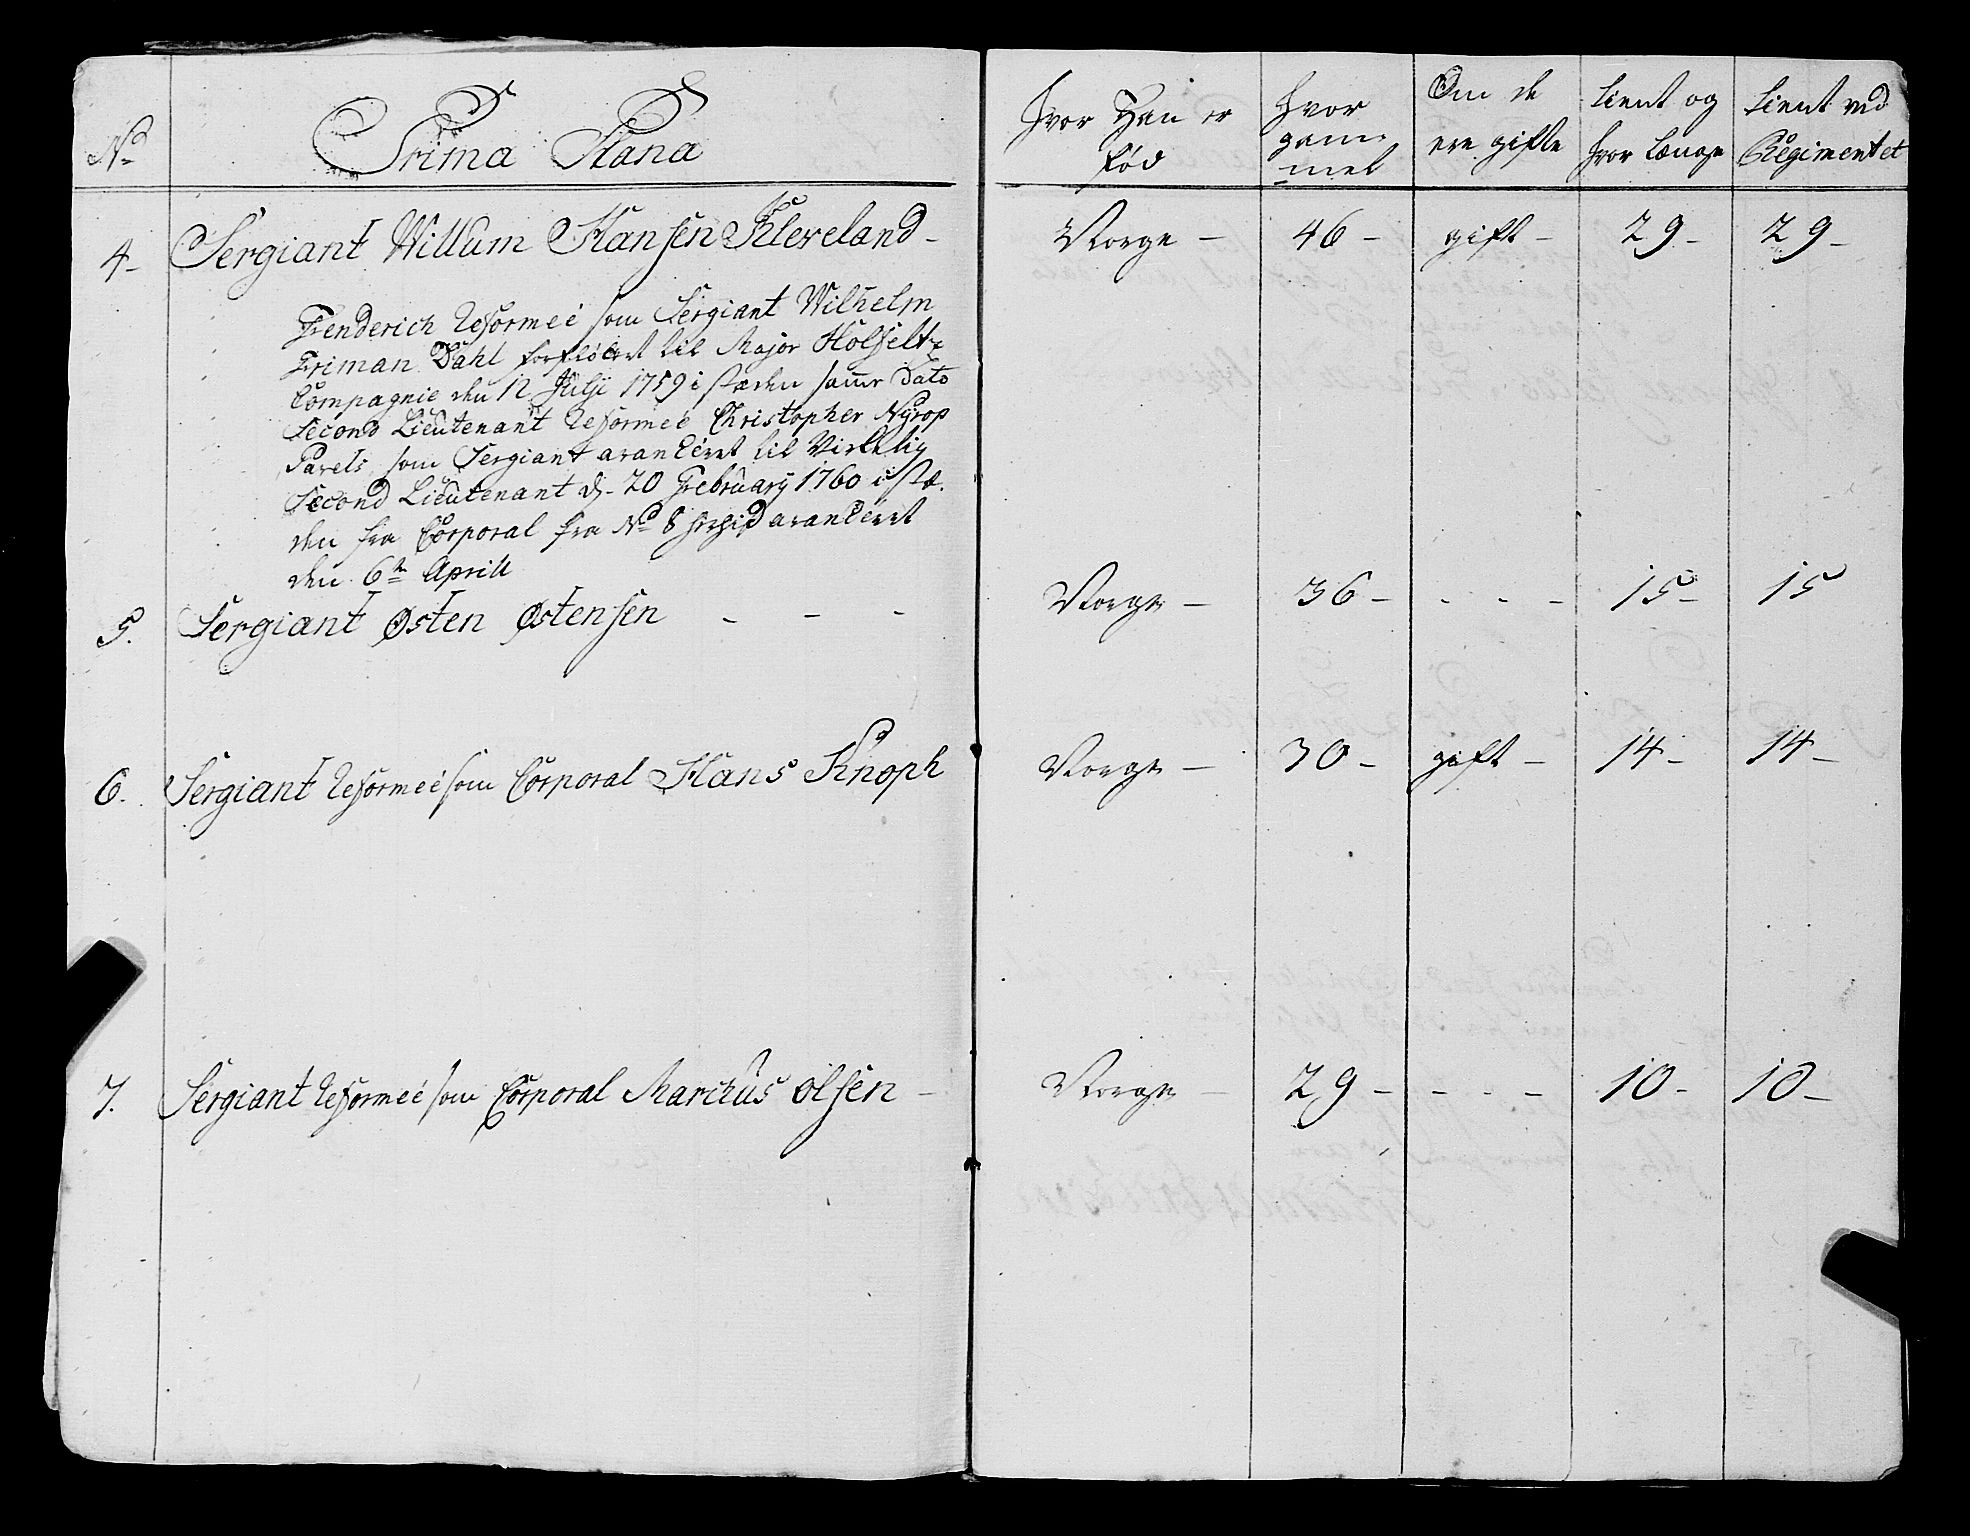 No
Prima Plana
Hvor Han er
fød
Hvor
gam-
mel
Om de
ere gifte
tient og
hvor Længe
tient ved
Regimentet
4- Sergiant Willum Hansen Kleveland - Norge - 46 - gift - 29 - 29 -
Fenderich Reformeé som Sergiant Wilhelm
Friman Dahl forfløttet til Major Holfeltz
Compagnie den 12 Julÿ 1759 i stæden samme Dato
Second Lieutenant Reformeé Christopher Nÿrop
Parels som Sergiant avanceret til Virkelig
Second Lieutenant d. 20 Februarÿ 1760 i stæ-
den fra Corporal fra No 8 hid avanceret
den 6te Aprill
5. Sergiant Østen Østensen - - - Norge - 36 - - - - 15 - 15
6. Sergiant Reformeé som Corporal Hans Knoph Norge - 30 - gift - 14 - 14 -
7. Sergiant Reformeé som Corporal Marchus Olsen - Norge - 29 - - - - 10 - 10 -